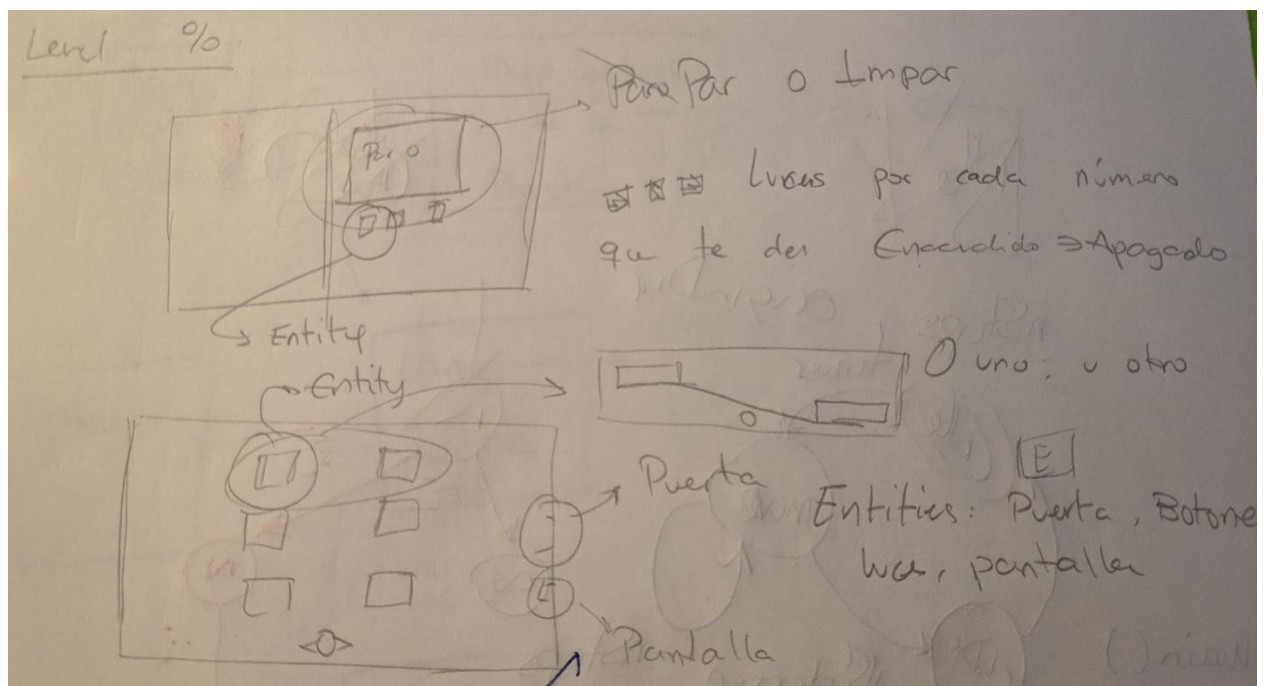 Level %
Para Par o Impar
Par o
Luces por cada número
que te den Encendido ⇒ Apagado
Entity
Entity
O uno, u otro
E
Puerta
Entities: Puerta, Botone
luces, pantalla
E
Pantalla